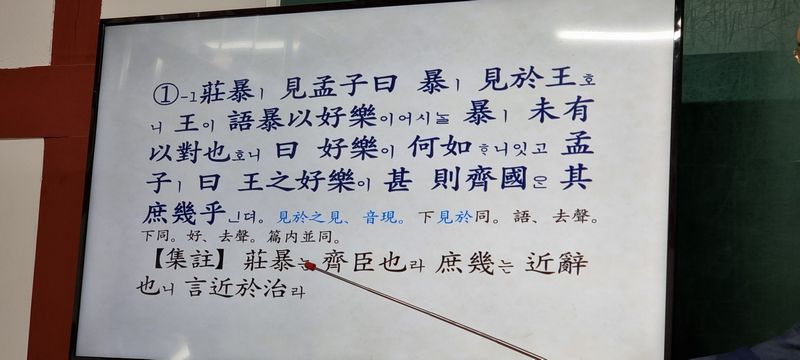 ①-1莊暴ㅣ 見孟子曰 暴ㅣ 見於王호
니 王이 語暴以好樂이어시늘 暴ㅣ 未有
以對也호니 曰 好樂이 何如ᄒᆞ니잇고 孟
子ㅣ 曰 王之好樂이 甚 則齊國은 其
庶幾乎ᅟᅵᆫ뎌。 見於之見、音現。下見於同。語、去聲。
下同。好、去聲。篇内並同。
【集註】 莊暴는 齊臣也라 庶幾는 近辭
也니 言近於治라